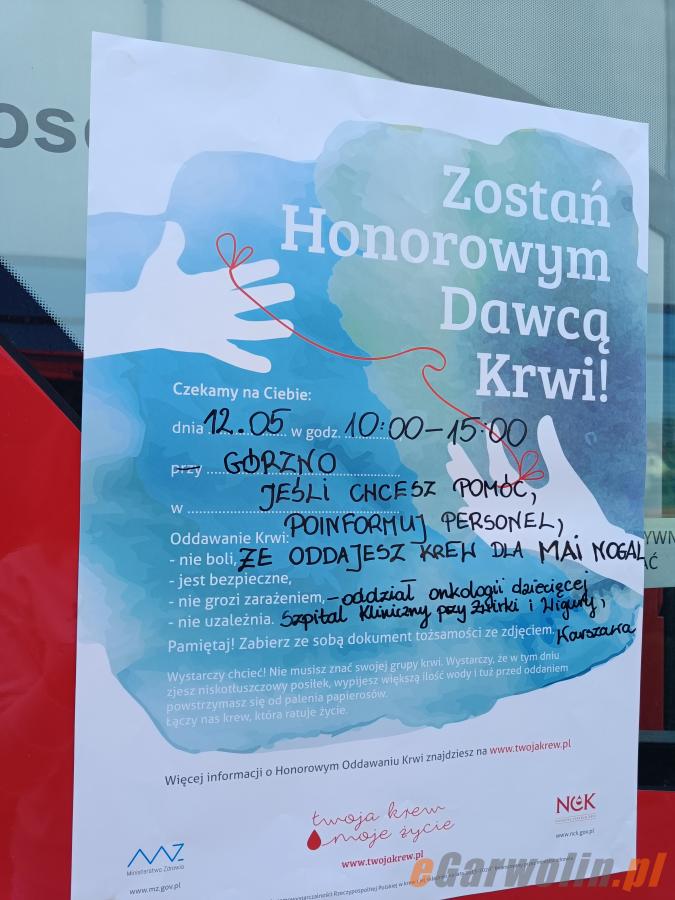 Zostań
Honorowym
Dawcą
Krwi!
Czekamy na Ciebie:
dnia 12.05 w godz. 10:00-15:00
przy GÓRZNO
w JEŚLI CHCESZ POMÓC,
POINFORMUJ PERSONEL,
Oddawanie Krwi:
ŻE ODDAJESZ KREW DLA MAI NOGAL
- nie boli,
- jest bezpieczne,
- oddział onkologii dziecięcej
- nie grozi zarażeniem,
Szpital Kliniczny przy Żwirki i Wigury,
- nie uzależnia.
Warszawa
Pamiętaj! Zabierz ze sobą dokument tożsamości ze zdjęciem.
Wystarczy chcieć! Nie musisz znać swojej grupy krwi. Wystarczy, że w tym dniu
zjesz niskotłuszczowy posiłek, wypijesz większą ilość wody i tuż przed oddaniem
powstrzymasz się od palenia papierosów.
Łączy nas krew, która ratuje życie.
Więcej informacji o Honorowym Oddawaniu Krwi znajdziesz na www.twojakrew.pl
twoja krew
moje życie
www.twojakrew.pl
MZ
Ministerstwo Zdrowia
www.mz.gov.pl
NCK
www.nck.gov.pl
eGarwolin.pl